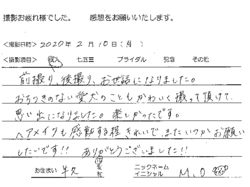 撮影お疲れ様でした。 感想をお願いいたします。
＜撮影日時＞ 2020年2月10日(月)
＜撮影項目＞ 成人 七五三 ブライダル 記念 その他
前撮り、後撮り、お世話になりました。
おちつきのない愛犬のこともかわいく撮って頂けて、
思い出になりました。楽しかったです。
ヘアメイクも感動する程きれいで、またいつかお願い
したいです!! ありがとうございました!!
お住まい 牛久
ニックネーム
イニシャル M.O